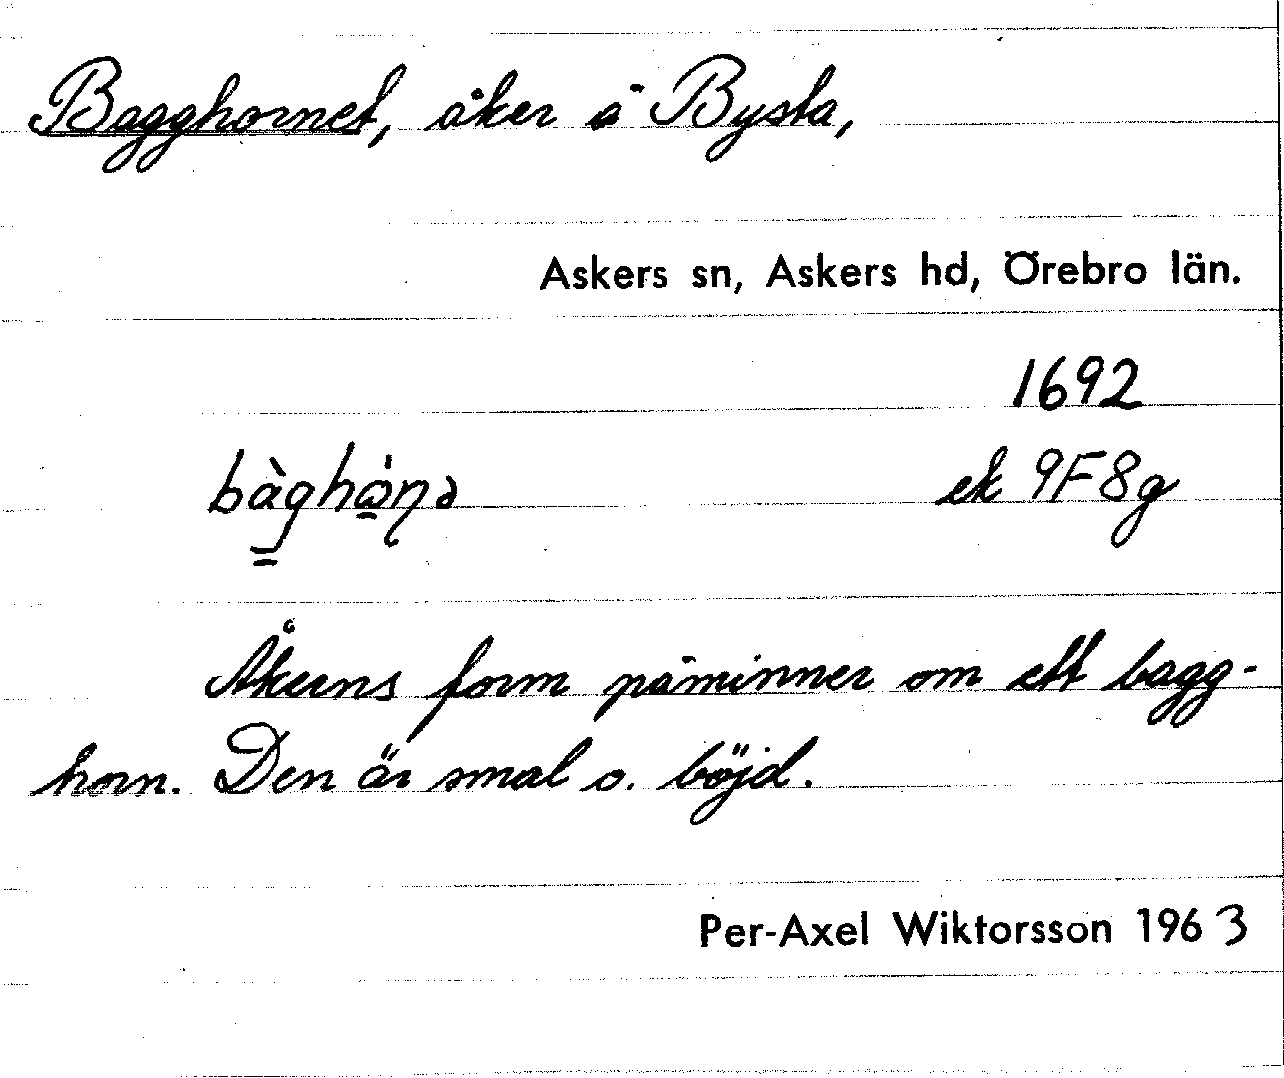 Bagghornet, åker å Bysta,
Askers sn, Askers hd, Örebro län.
1692
ek 9F8g
Åkerns form påminner om ett bagg-
horn. Den är smal o. böjd.
Per-Axel Wiktorsson 1963